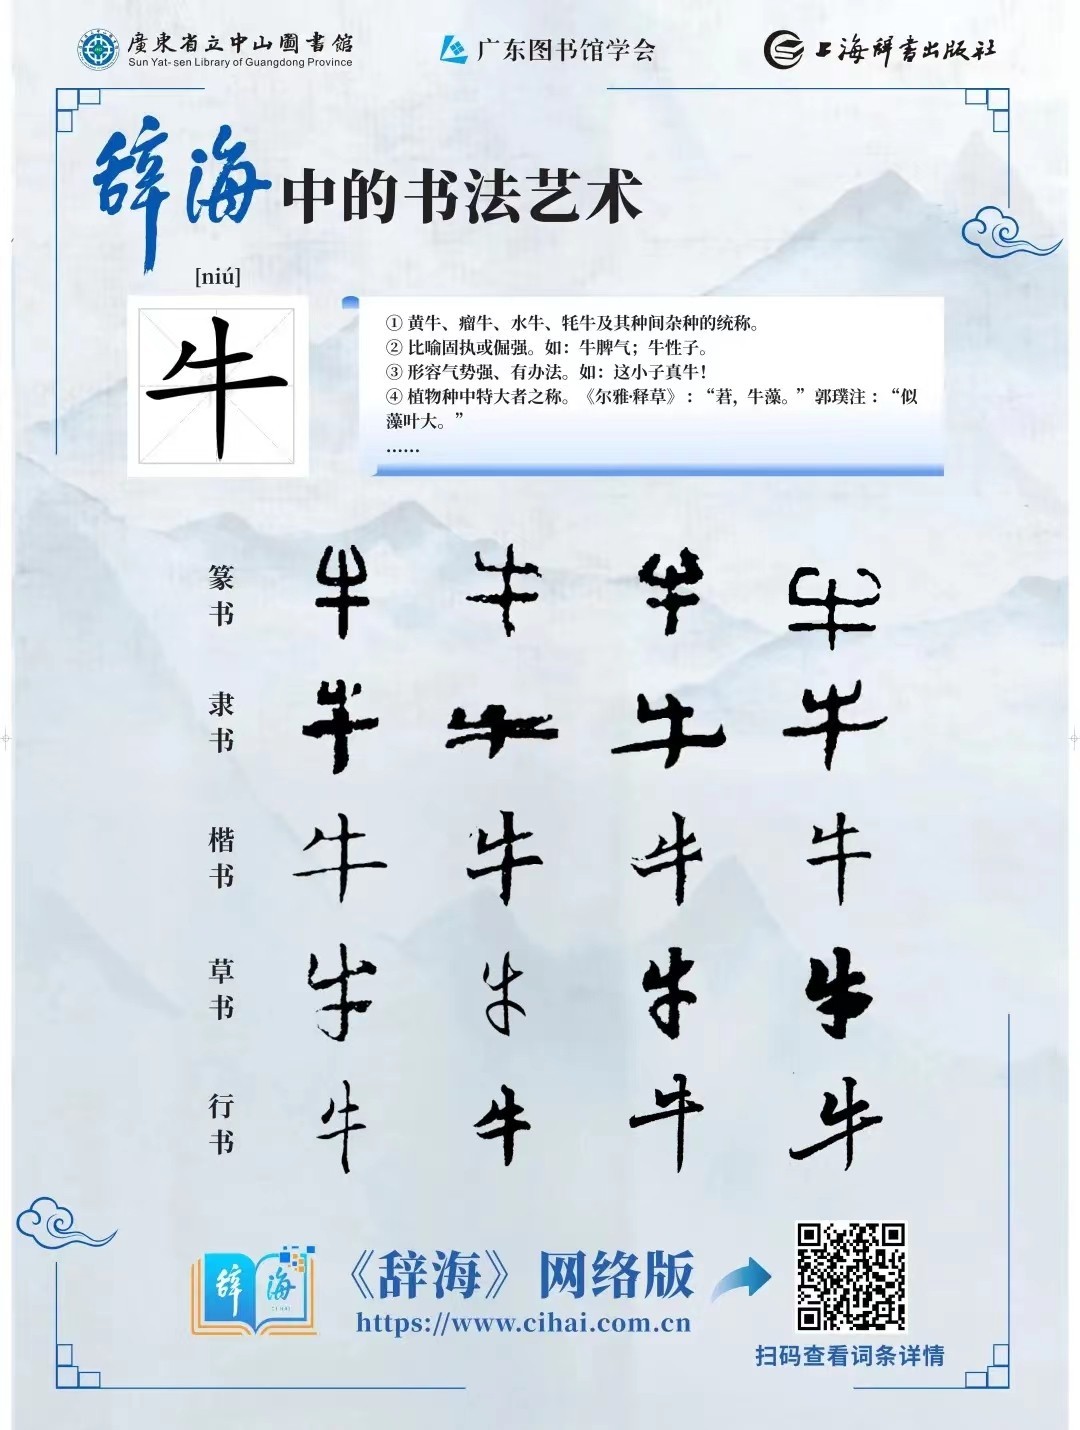 廣東省立中山圖書館
Sun Yat-sen Library of Guangdong Province
广东图书馆学会
上海辞书出版社
辞海中的书法艺术
[niú]
牛
① 黄牛、瘤牛、水牛、牦牛及其种间杂种的统称。
② 比喻固执或倔强。如：牛脾气；牛性子。
③ 形容气势强、有办法。如：这小子真牛！
④ 植物种中特大者之称。《尔雅·释草》：“莙，牛藻。”郭璞注：“似
藻叶大。”
……
篆书 牛 牛 牛 牛
隶书 牛 牛 牛 牛
楷书 牛 牛 牛 牛
草书 牛 牛 牛 牛
行书 牛 牛 牛 牛
辞海
CIHAI
《辞海》网络版
https://www.cihai.com.cn
扫码查看词条详情